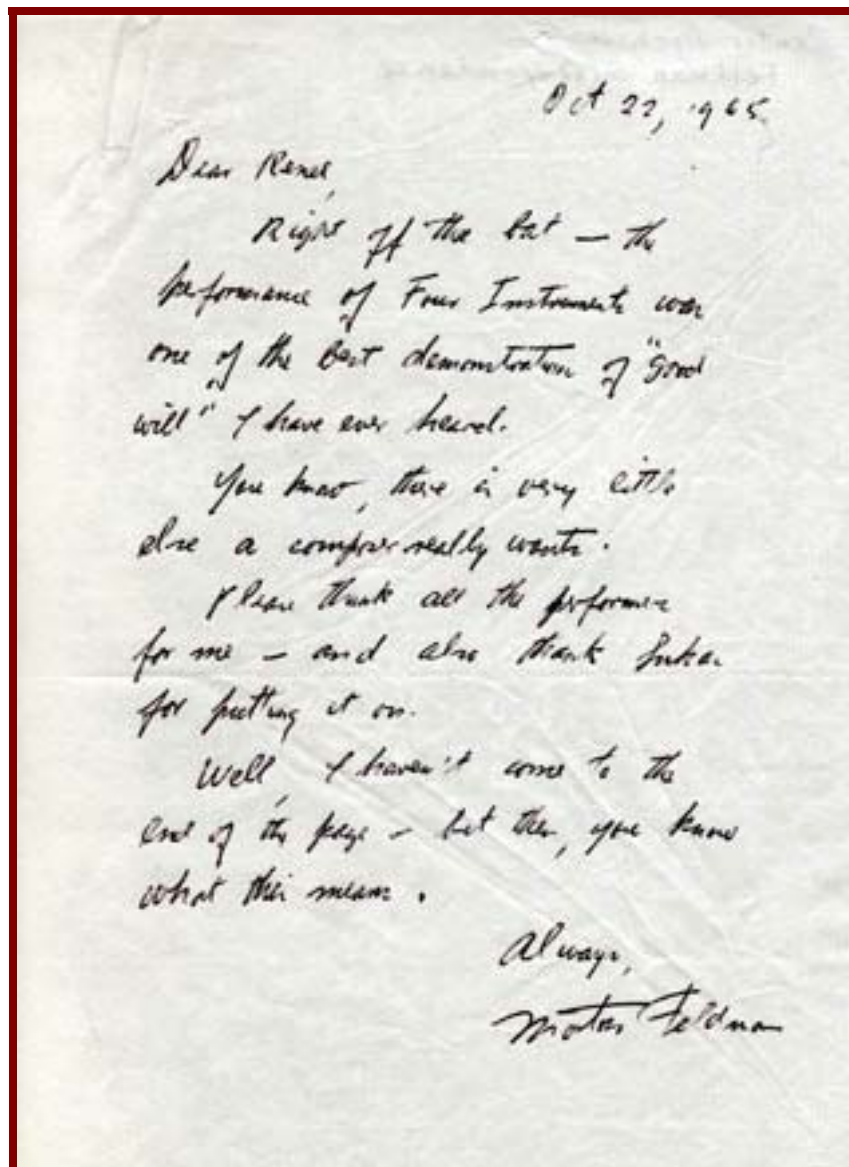 Oct 22, 1965
Dear Renee,
Right off the bat — the
performance of Four Instruments was
one of the best demonstration of "Good
will" I have ever heard.
You know, there is very little
else a composer really wants.
Please thank all the performers
for me — and also thank Lukas
for putting it on.
Well, I haven't come to the
end of the page — but then, you know
what this means.
Always,
Morton Feldman